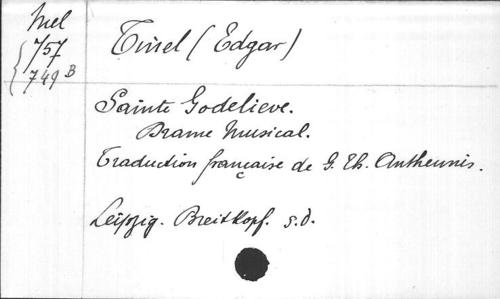 Mel
757
749 B
Tinel (Edgar)
Sainte Godelieve.
Drame Musical.
Traduction française de G. Th. Antheunis.
Leipzig. Breitkopf. s.d.